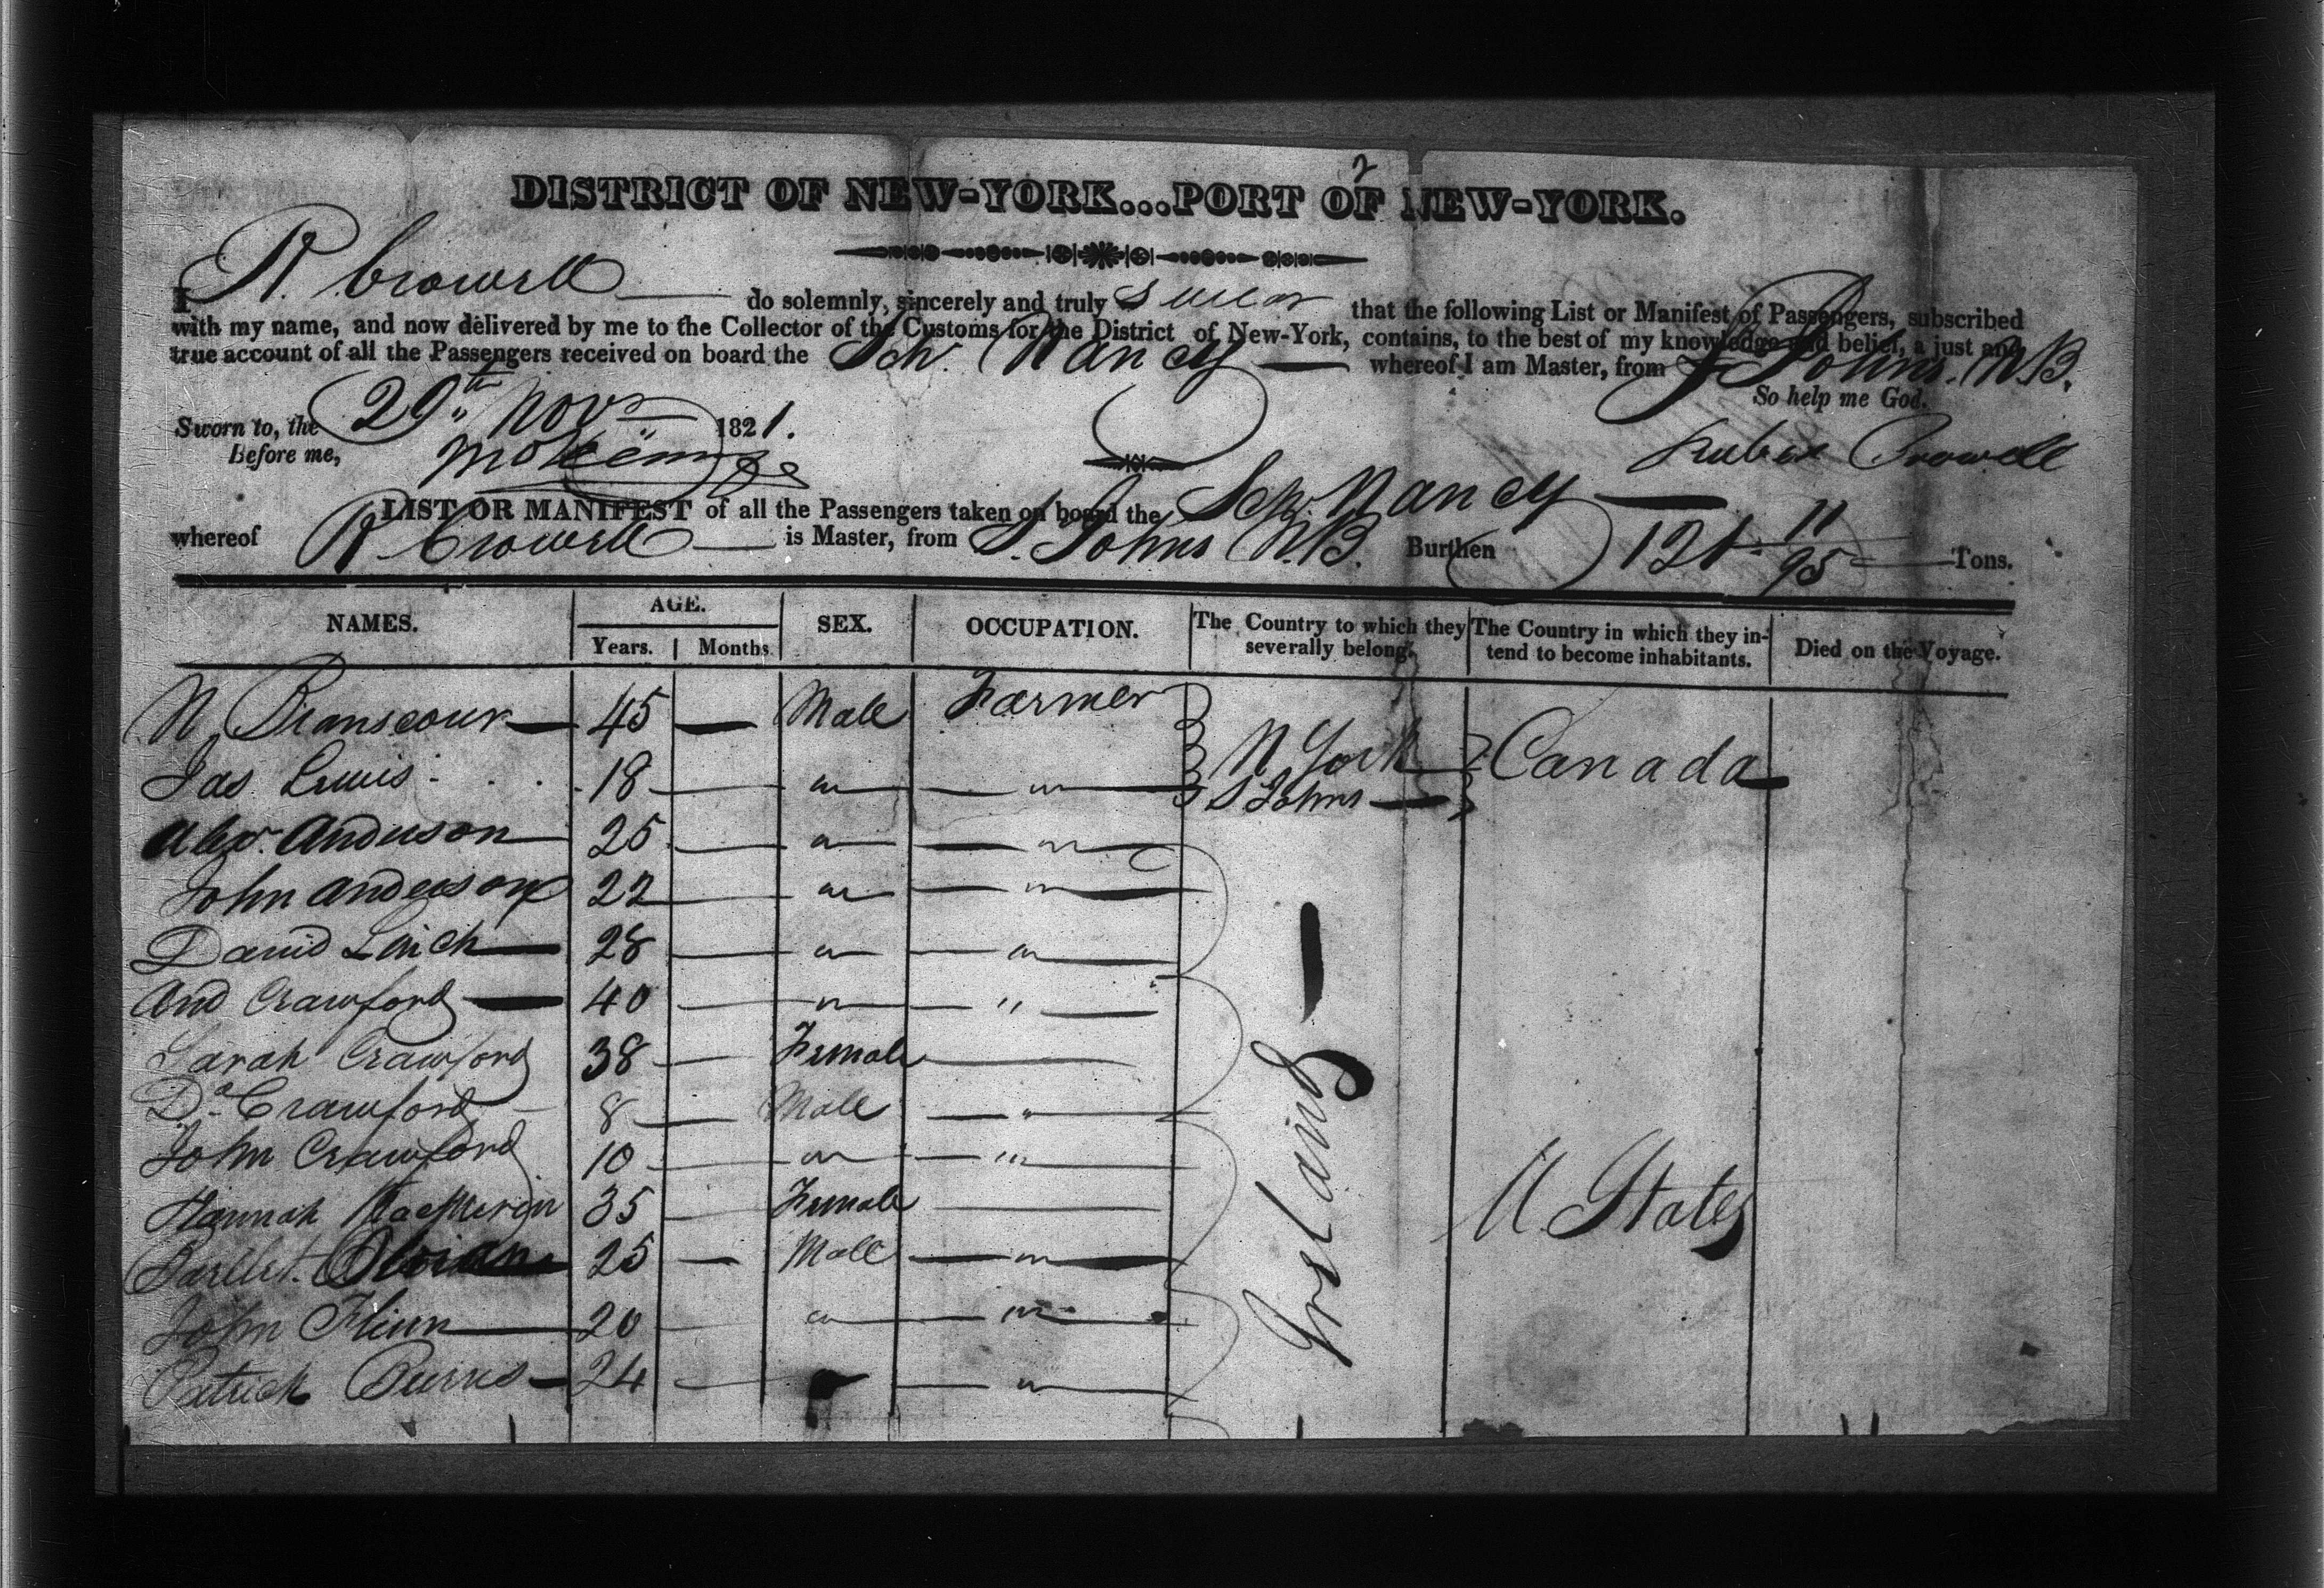 2
DISTRICT OF NEW-YORK...PORT OF NEW-YORK.
I R. Crowell do solemnly, sincerely and truly swear that the following List or Manifest of Passengers, subscribed
with my name, and now delivered by me to the Collector of the Customs for the District of New-York, contains, to the best of my knowledge and belief, a just and
true account of all the Passengers received on board the Sch. Nancy whereof I am Master, from St Johns. NB.
So help me God.
Sworn to, the 29th Novr 1821.
Before me,
Ruben Crowell
LIST OR MANIFEST of all the Passengers taken on board the Schr. Nancy
whereof R Crowell is Master, from St. Johns NB. Burthen 121 11/95 Tons.
NAMES. AGE. SEX. OCCUPATION. The Country to which they severally belong. The Country in which they intend to become inhabitants. Died on the Voyage.
Years. Months
N. Branscour 45 — Male Farmer
Jas Lewis 18 — " — " N York Canada
St Johns
Alexr. Anderson 25 — " — "
John Anderson 22 — " — "
David Linch 28 — " — "
And Crawford 40 — " — "
Sarah Crawford 38 — Female —
Do. Crawford 8 — Male — "
John Crawford 10 — " — "
Hannah 35 — Female — Ireland U. States
Bartlet. 25 — Male — "
John Flinn 20 — " — "
Patrick Burns 24 — — "